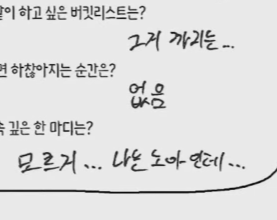 같이 하고 싶은 버킷리스트는?
그거 까지는...
면 하찮아지는 순간은?
없음
속 깊은 한 마디는?
모르게... 나는 노아인데...